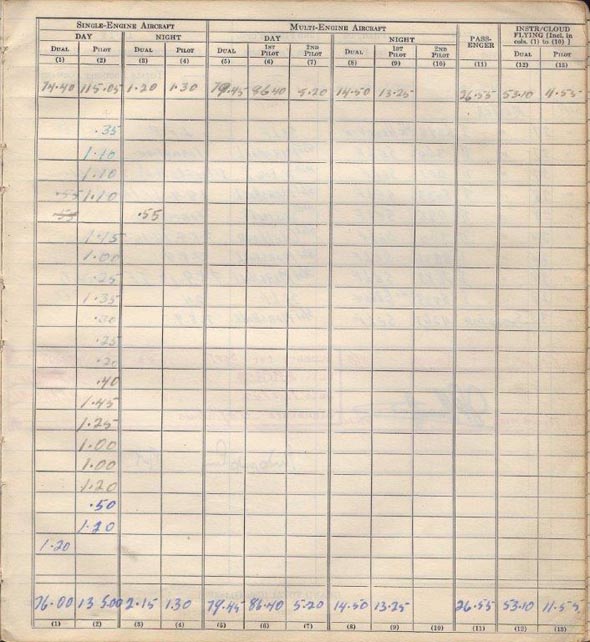 SINGLE-ENGINE AIRCRAFT MULTI-ENGINE AIRCRAFT PASS-ENGER INSTR/CLOUD FLYING [Incl. in cols. (1) to (10)]
DAY NIGHT DAY NIGHT
DUAL PILOT DUAL PILOT DUAL 1ST PILOT 2ND PILOT DUAL 1ST PILOT 2ND PILOT DUAL PILOT
(1) (2) (3) (4) (5) (6) (7) (8) (9) (10) (11) (12) (13)
74.40 115.05 1.20 1.30 79.45 86.40 5.20 14.50 13.25 26.55 53.10 11.55
.35
1.10
1.10
.55 1.10
.55 .55
1.15
1.00
.25
1.35
.30
.25
.20
.40
1.45
1.25
1.00
1.00
1.20
.50
1.20
1.20
76.00 135.00 2.15 1.30 79.45 86.40 5.20 14.50 13.25 26.55 53.10 11.55
(1) (2) (3) (4) (5) (6) (7) (8) (9) (10) (11) (12) (13)